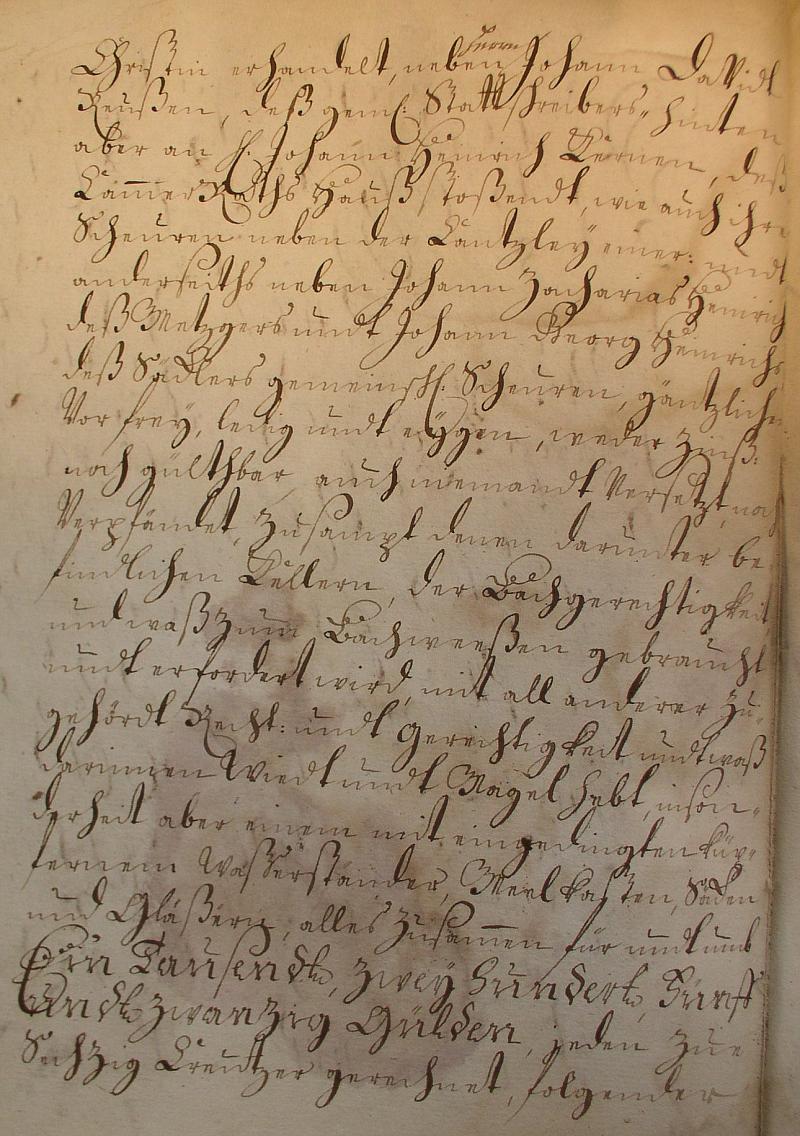 Christin erhandelt, neben Herrn Johann David
Reußen, deß gem: Stattschreibers, hinten
aber an H. Johann Heinrich Kernen, deß
Cammer Raths Hauß stoßendt, wie auch ihre
Scheuren neben der Cantzley einer: undt
anderseiths neben Johann Zacharias Heinrich
deß Metzgers undt Johann Georg Heinrichs
deß Sattlers gemeinschl. Scheuren, gäntzlichen
Vor frey, ledig undt eygen, weder Zinß:
noch gülthbar, auch niemandt Versetzt, noch
Verpfändet, Zusampt denen darunter be
findlichen Kellern, der Bachgerechtigkeit,
und waß zum Bachweeßen gebraucht
undt erfordert wird, mit all anderer Zu-
gehördt Recht: undt Gerechtigkeit undt waß
darinnen Wiedt undt Nagel hebt, inson-
derheit aber einem mit eingedingten küp-
fernem Wasserständer, Meelkasten, Säcken
und Gläßern, alles Zusammen für undt umb
Ein Tausendt, zwey Hundert, Fünff
Undt zwanzig Gülden, jeden zue
Sechzig Creutzer gerechnet, folgender